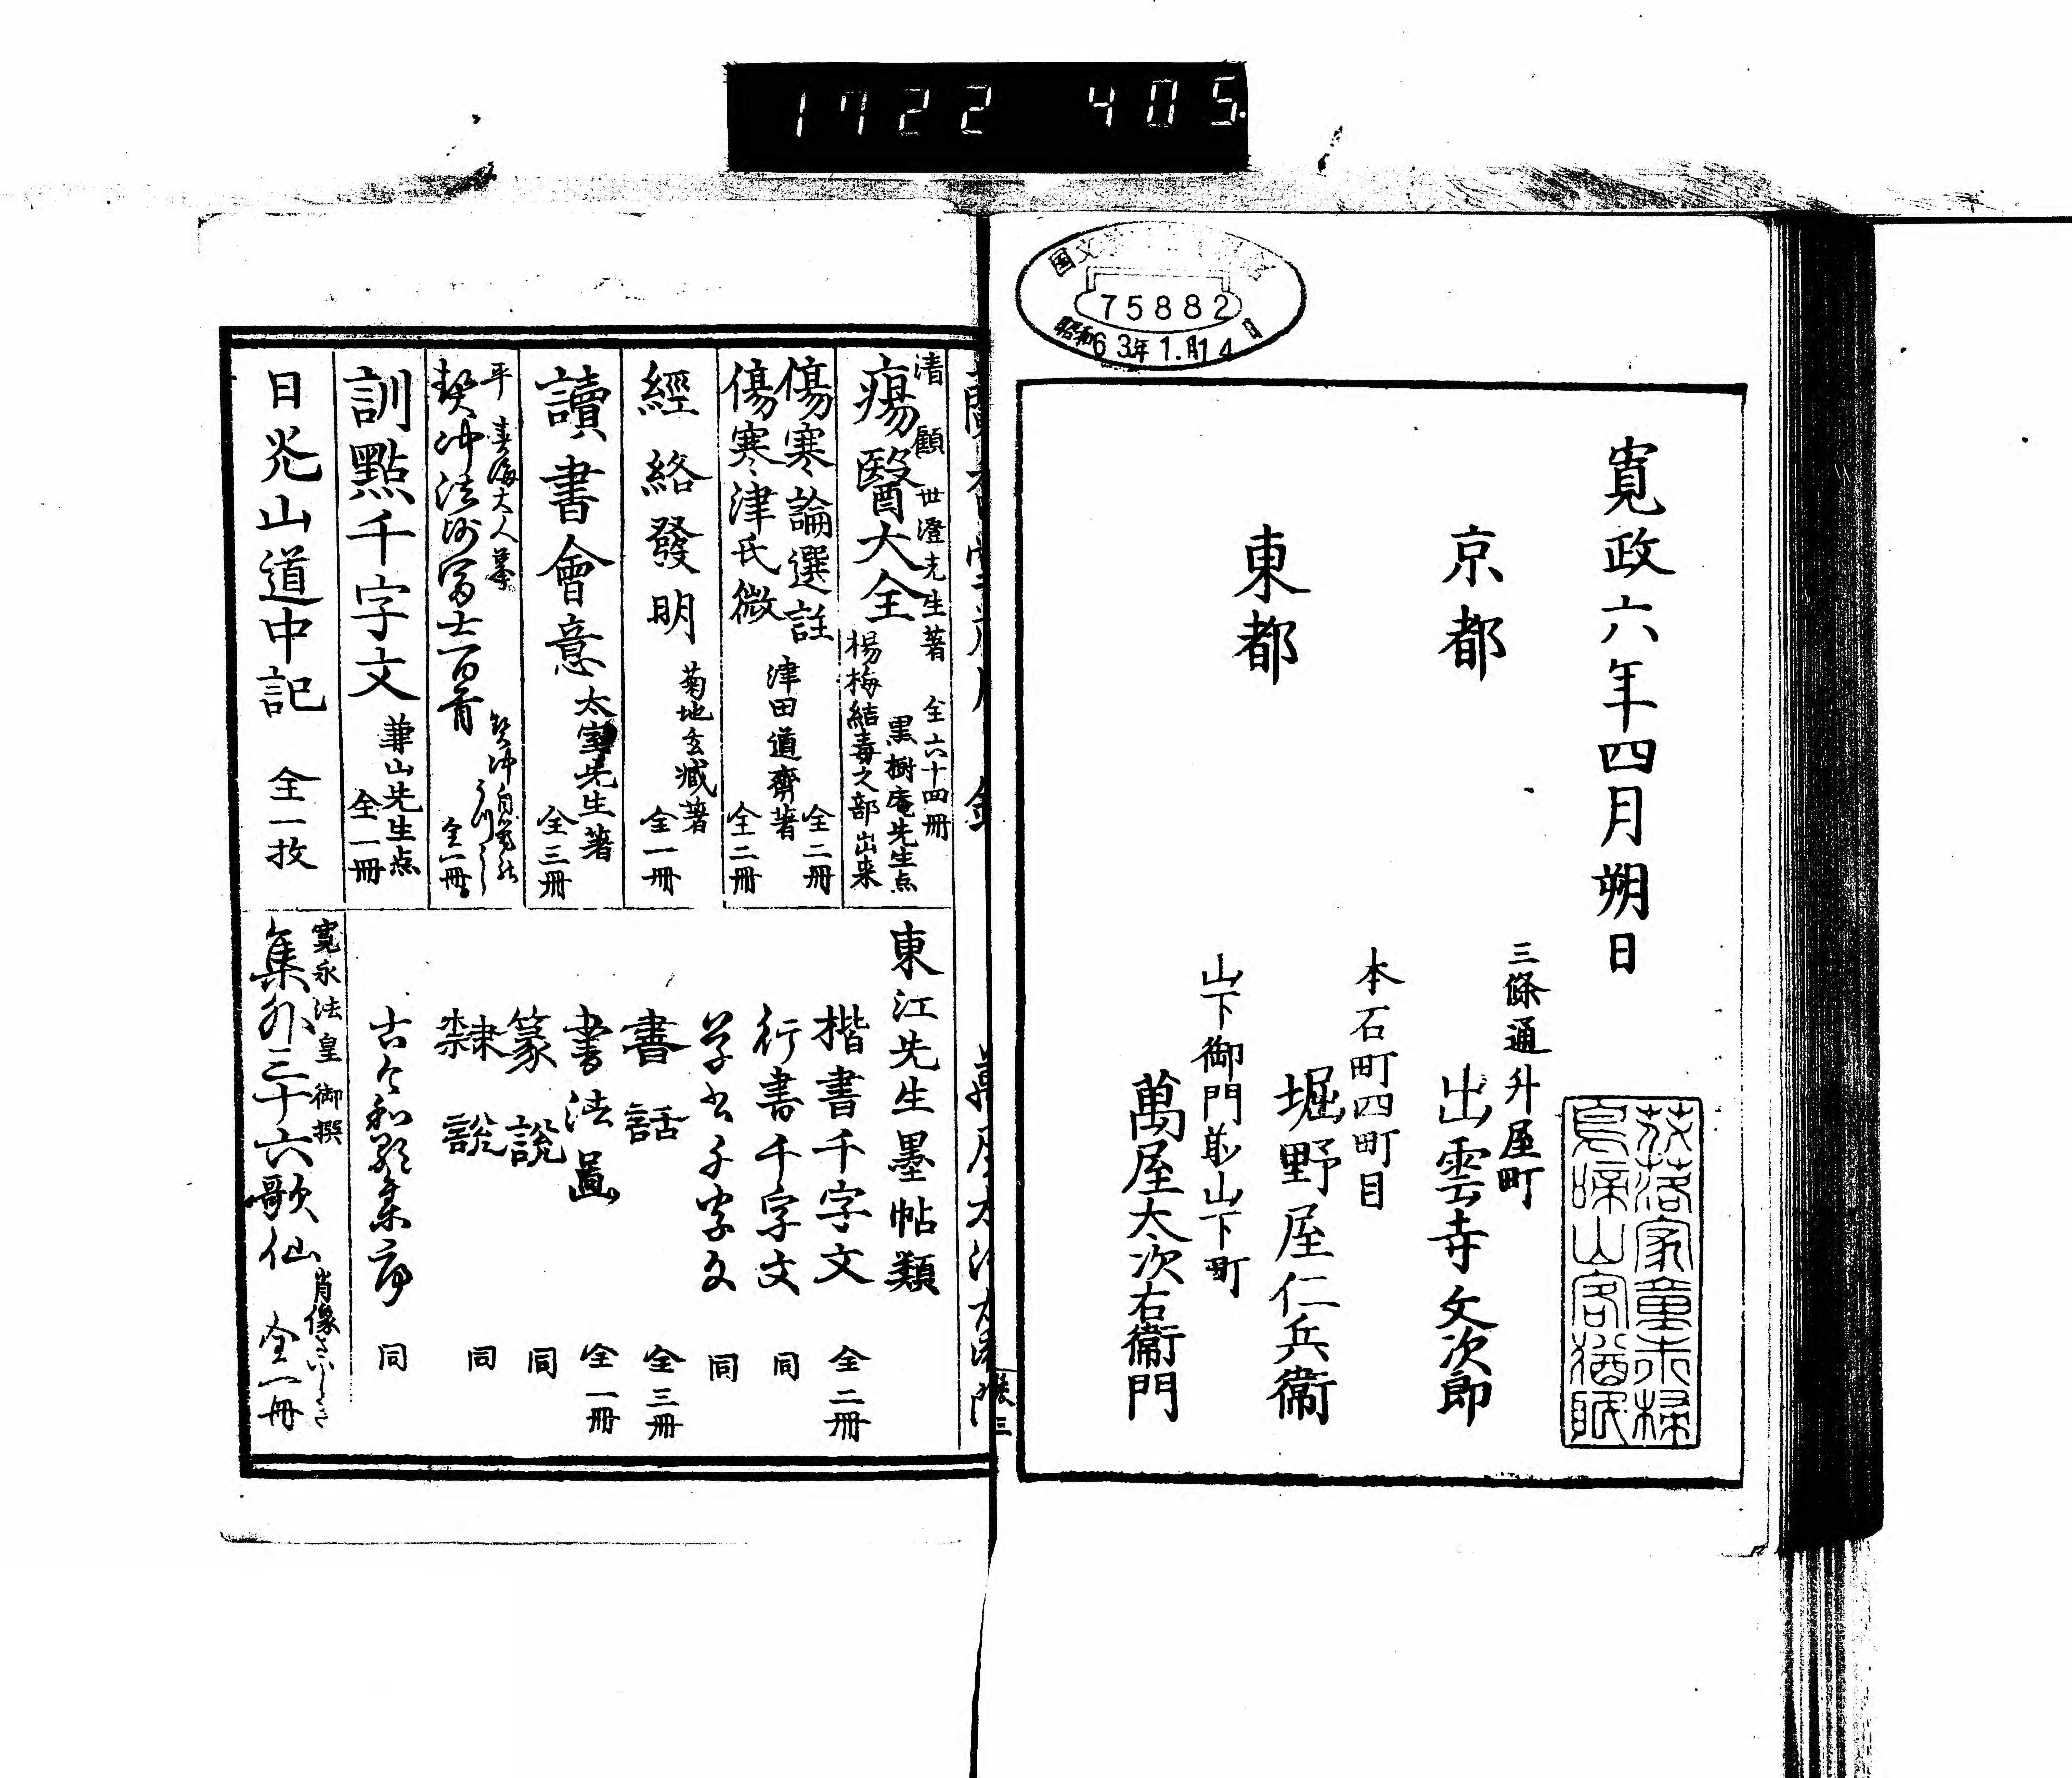 1722 405
75882
昭和63年1.月14日
寛政六年四月朔日
京都
三條通升屋町
出雲寺文次郎
東都
本石町四町目
堀野屋仁兵衞
山下御門前山下町
萬屋太次右衞門
花落家童未掃
鳥啼山客猶眠
清 顧世澄先生著 全六十四冊
瘍醫大全
黒樹庵先生点
楊梅結毒之部出来
傷寒論選註 全二冊
津田道齋著
傷寒津氏微 全二冊
經絡發明
菊地玄藏著
全一冊
讀書會意
太室先生著
全三冊
平春海大人摹
契冲法師冨士百首
契冲自筆
全一冊
訓點千字文
兼山先生点
全一冊
日光山道中記 全一枚
東江先生墨帖類
楷書千字文 全二冊
行書千字文 同
草書千字文 同
書話 全三冊
書法圖 全一冊
篆説 同
隸説 同
古今和歌集序 同
寛永法皇御撰
集外三十六歌仙
肖像
全一冊